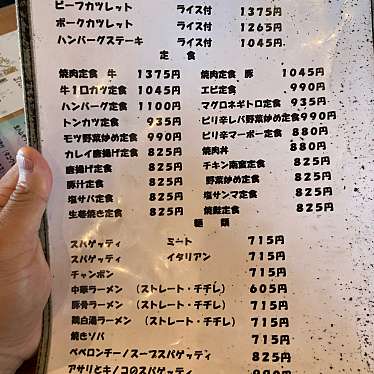 ビーフカツレット ライス付 1375円
ポークカツレット ライス付 1265円
ハンバーグステーキ ライス付 1045円
定食
焼肉定食 牛 1375円 焼肉定食 豚 1045円
牛1口カツ定食 1045円 エビ定食 990円
ハンバーグ定食 1100円 マグロネギトロ定食 935円
トンカツ定食 935円 ピリ辛レバ野菜炒め定食 990円
モツ野菜炒め定食 990円 ピリ辛マーボー定食 880円
カレイ唐揚げ定食 825円 焼肉丼 880円
唐揚げ定食 825円 チキン南蛮定食 825円
豚汁定食 825円 野菜炒め定食 825円
塩サバ定食 825円 塩サンマ定食 825円
生姜焼き定食 825円 焼餃定食 825円
麺類
スパゲッティ ミート 715円
スパゲッティ イタリアン 715円
チャンポン 715円
中華ラーメン (ストレート・チヂレ) 605円
豚骨ラーメン (ストレート・チヂレ) 715円
鶏白湯ラーメン (ストレート・チヂレ) 715円
焼きソバ 715円
ペペロンチーノスープスパゲッティ 825円
アサリとキノコのスパゲッティ